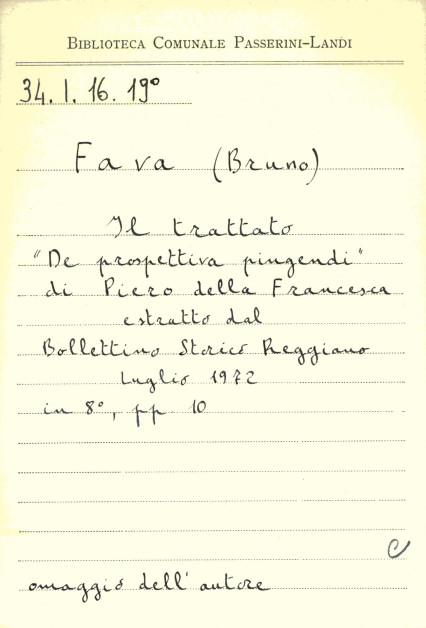 BIBLIOTECA COMUNALE PASSERINI-LANDI
34. I. 16. 19°
Fava (Bruno)
Il trattato
"De prospettiva pingendi"
di Piero della Francesca
estratto dal
Bollettino Storico Reggiano
Luglio 1972
in 8°, pp 10
C
omaggio dell'autore